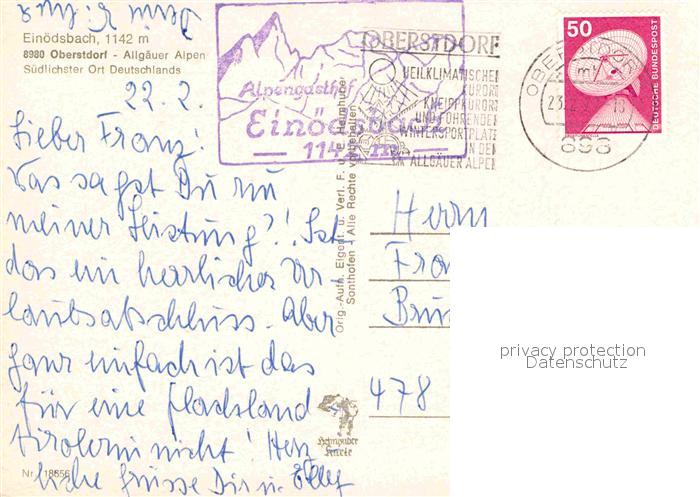 Einödsbach, 1142 m
8980 Oberstdorf - Allgäuer Alpen
Südlichster Ort Deutschlands
22. 2.
Lieber Franz!
Was sagst Du zu
meiner Leistung?! Ist
das ein herrlicher Ur-
laubsabschluss. Aber
ganz einfach ist das
für eine Flachland
tirolerin nicht! Herz
liche Grüsse Dir u.
Nr. 18656
Alpengasthof
Einödsbach
1142 m
Orig.-Aufn. Eigent. u. Verl. F. u. E. Heimhuber
Sonthofen - Alle Rechte vorbehalten
Heimhuber
Karte
OBERSTDORF
HEILKLIMATISCHER
KURORT
KNEIPPKURORT
UND FÜHRENDER
WINTERSPORTPLATZ
IN DEN
ALLGÄUER ALPEN
OBERSTDORF
23.2.
898
50
DEUTSCHE BUNDESPOST
Herrn
Fran
478
privacy protection
Datenschutz